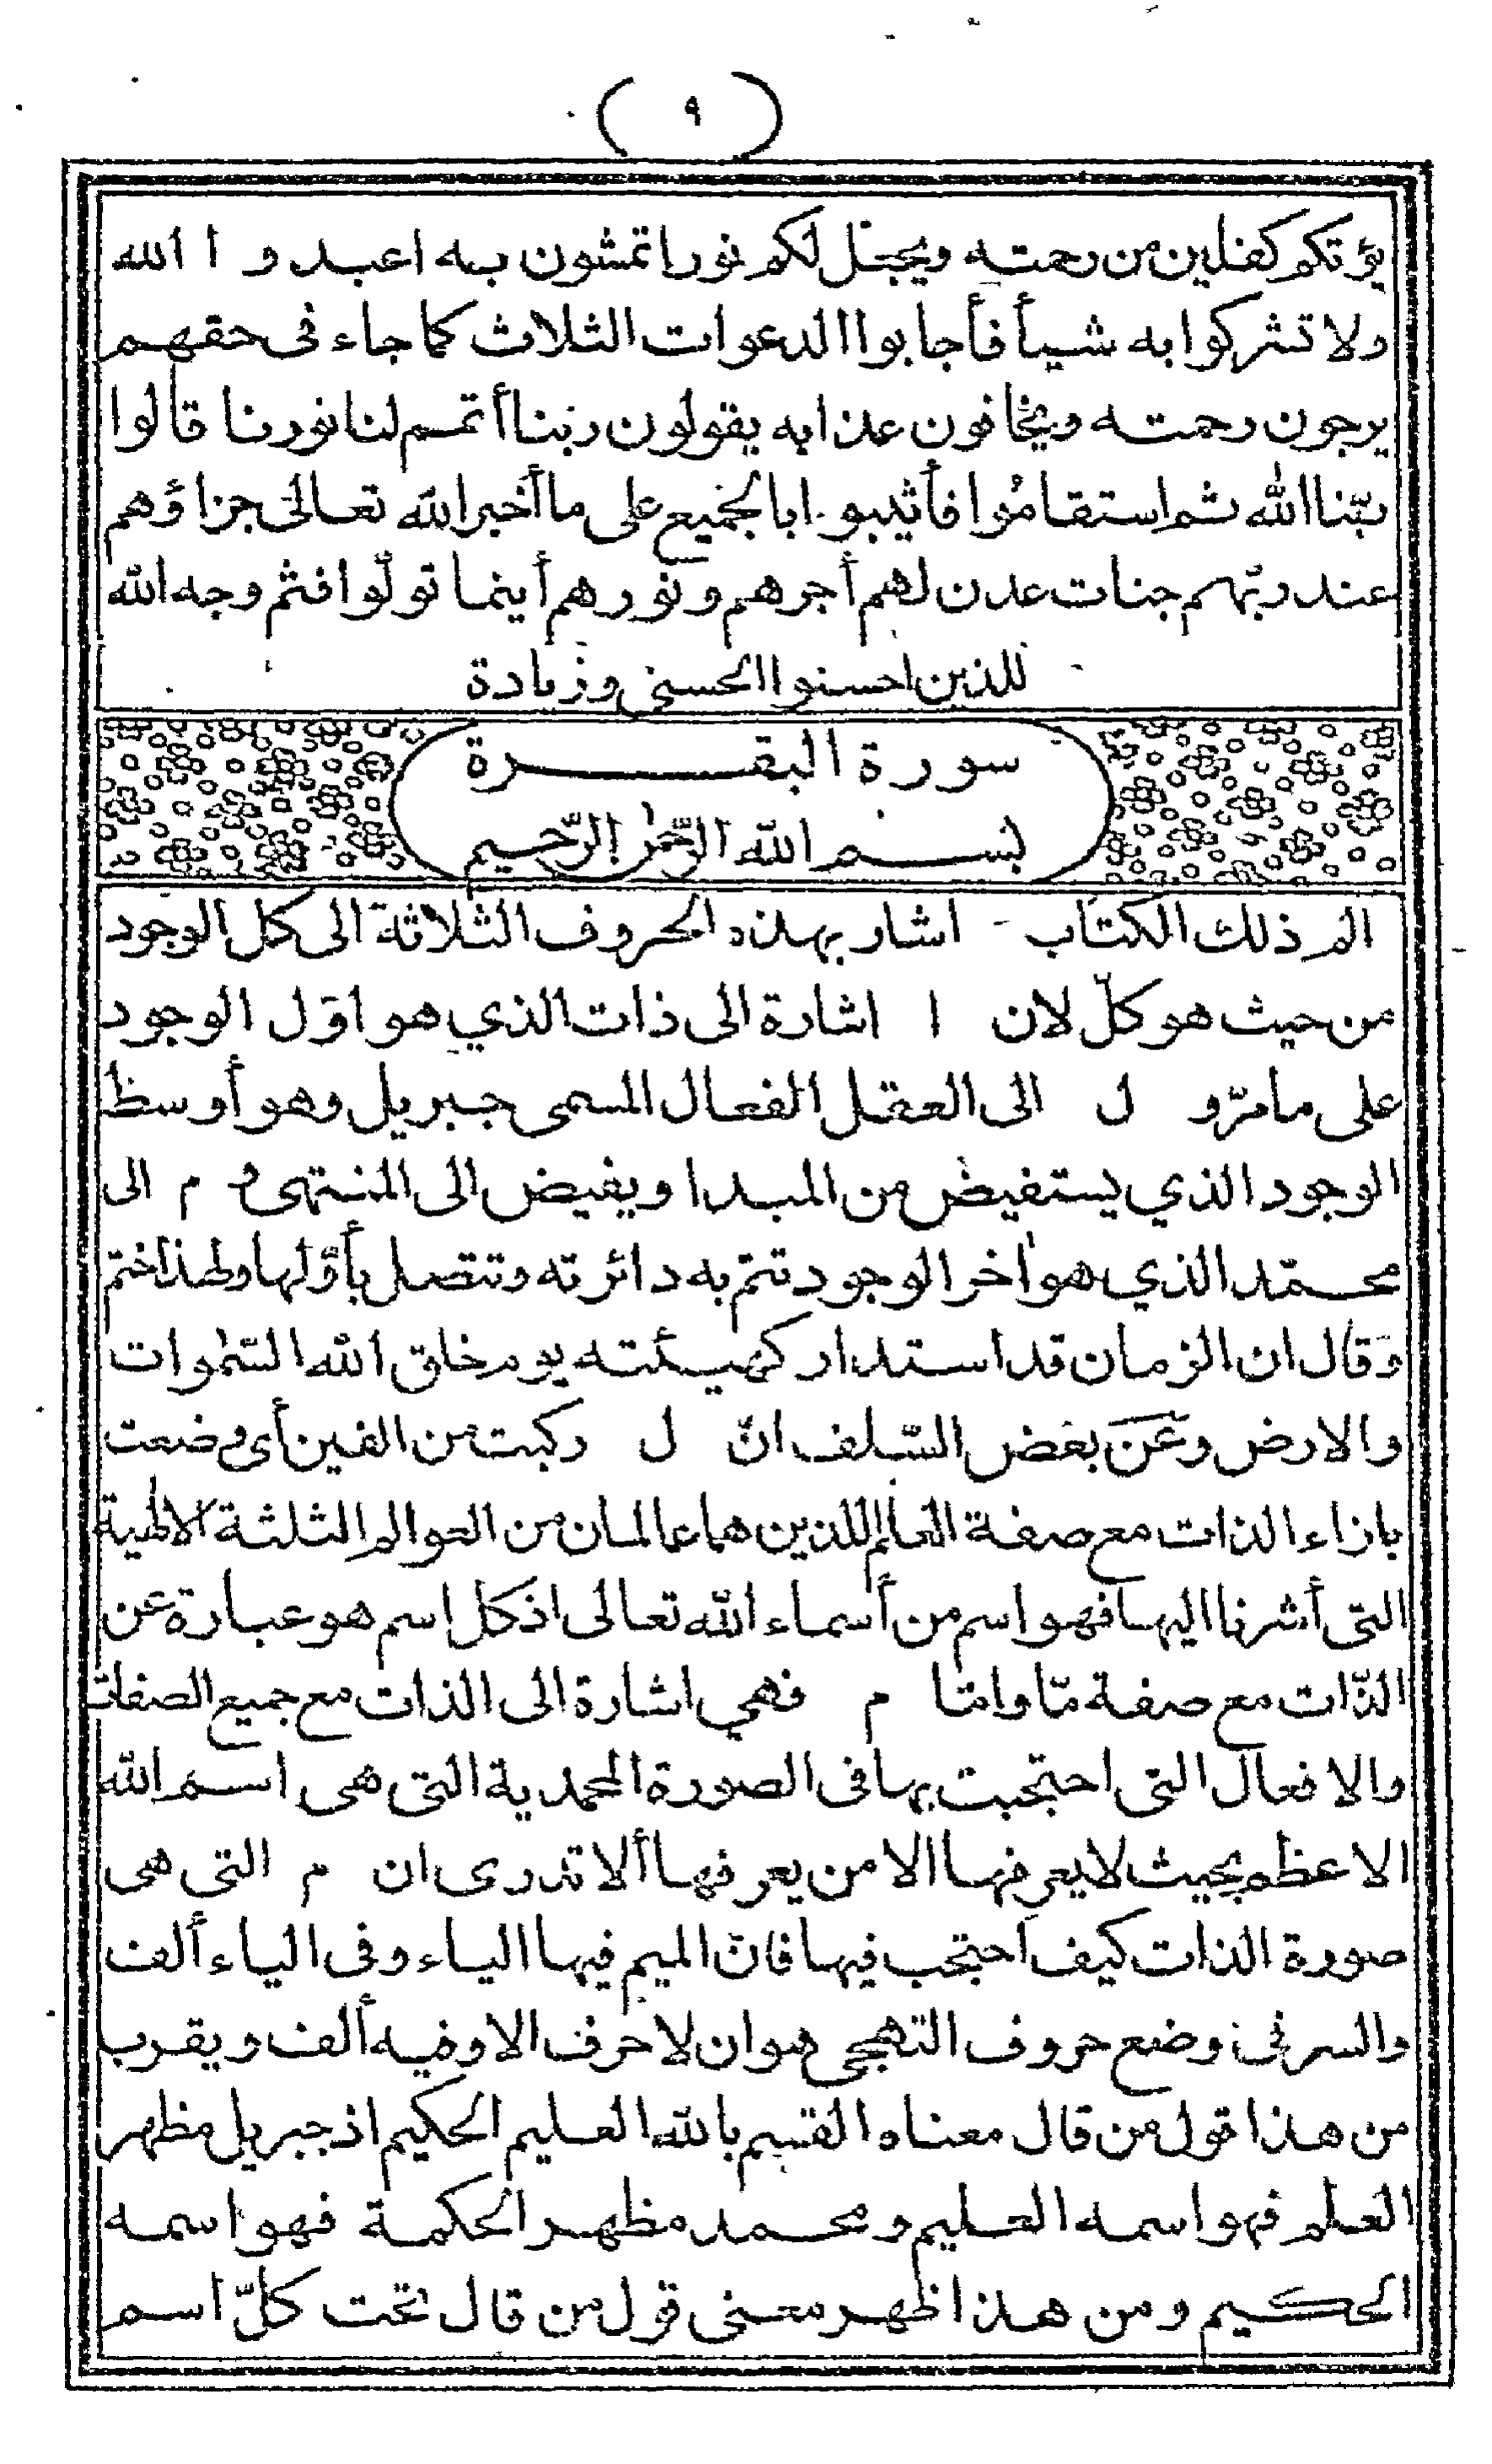 ( ٩ )
يؤتكم كفلين من رحمته ويجعل لكم نورا تمشون به اعبدوا الله
ولا تشركوا به شيأ فأجابوا الدعوات الثلاث كما جاء فى حقهم
يرجون رحمته ويخافون عذابه يقولون ربّنا أتمم لنا نورنا قالوا
ربّنا الله ثم استقامُوا فأثيبوا بالجميع على ما أخبر الله تعالى جزاؤهم
عند ربّهم جنات عدن لهم أجرهم ونورهم أينما تولّوا فثم وجه الله
للذين احسنوا الحسنى وزيادة
سورة البقرة
بسم الله الرّحمٰن الرّحيم
الم ذلك الكتاب - اشار بهذه الحروف الثلاثة الى كل الوجود
من حيث هو كلّ لان ا اشارة الى ذات الذي هو اوّل الوجود
على ما مرّ و ل الى العقل الفعال المسمى جبريل وهو أوسط
الوجود الذي يستفيض من المبدا ويفيض الى المنتهى و م الى
محمّد الذي هو اٰخر الوجود تتم به دائرته وتتصل بأوّلها ولهذا ختم
وَقَال ان الزمان قد استدار كهيئته يوم خلق الله السّمٰوات
والارض وعَنَ بعَض السّلف انّ ل ركبت من الفين أى وضعت
بازاء الذات مع صفة العالم اللذين هما عالمان من العوالم الثلثة الالٰهية
التى أشرنا اليها فهو اسم من أسماء الله تعالى اذ كل اسم هو عبارة عن
الذّات مع صفة مّا وامّا م فهي اشارة الى الذات مع جميع الصفات
والافعال التى احتجبت بها فى الصورة المحمدية التى هى اسم الله
الاعظم بحيث لا يعرفها الا من يعرفها ألا تدرى ان م التى هى
صورة الذات كيف احتجب فيها فانّ الميم فيها الياء وفى الياء ألف
والسر فى وضع حروف التهجى هو ان لا حرف الا وفيه ألف ويقرب
من هذا قول من قال معناه القسم بالله العليم الحكيم اذ جبريل مظهر
العلم فهو اسمه العليم ومحمد مظهر الحكمة فهو اسمه
الحكيم ومن هذا ظهر معنى قول من قال تحت كلّ اسم